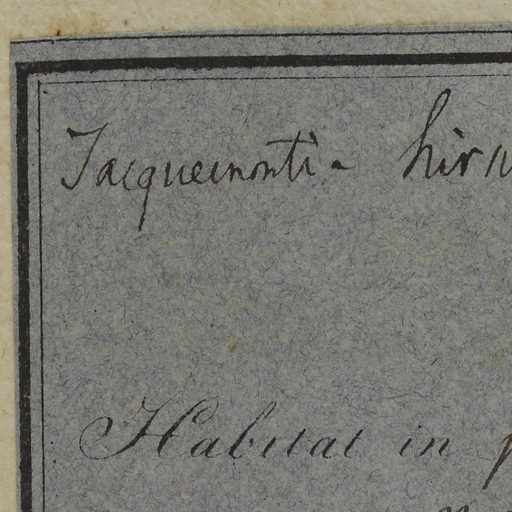 Jacquemontia
Habitat in